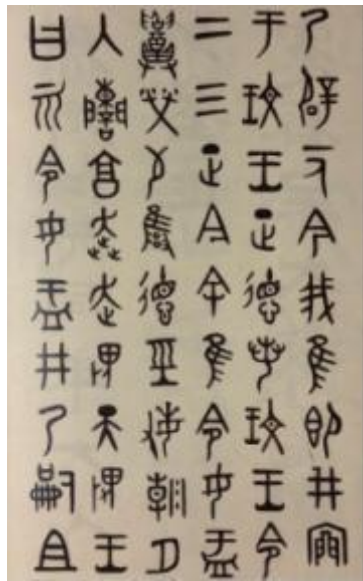 乃辟一人今我隹即井㐭
于玟王正德若玟王令
二三正今余隹令女盂
召榮敬雍德巠敏朝夕
入讕享奔走畏天畏王
曰而令女盂井乃嗣且